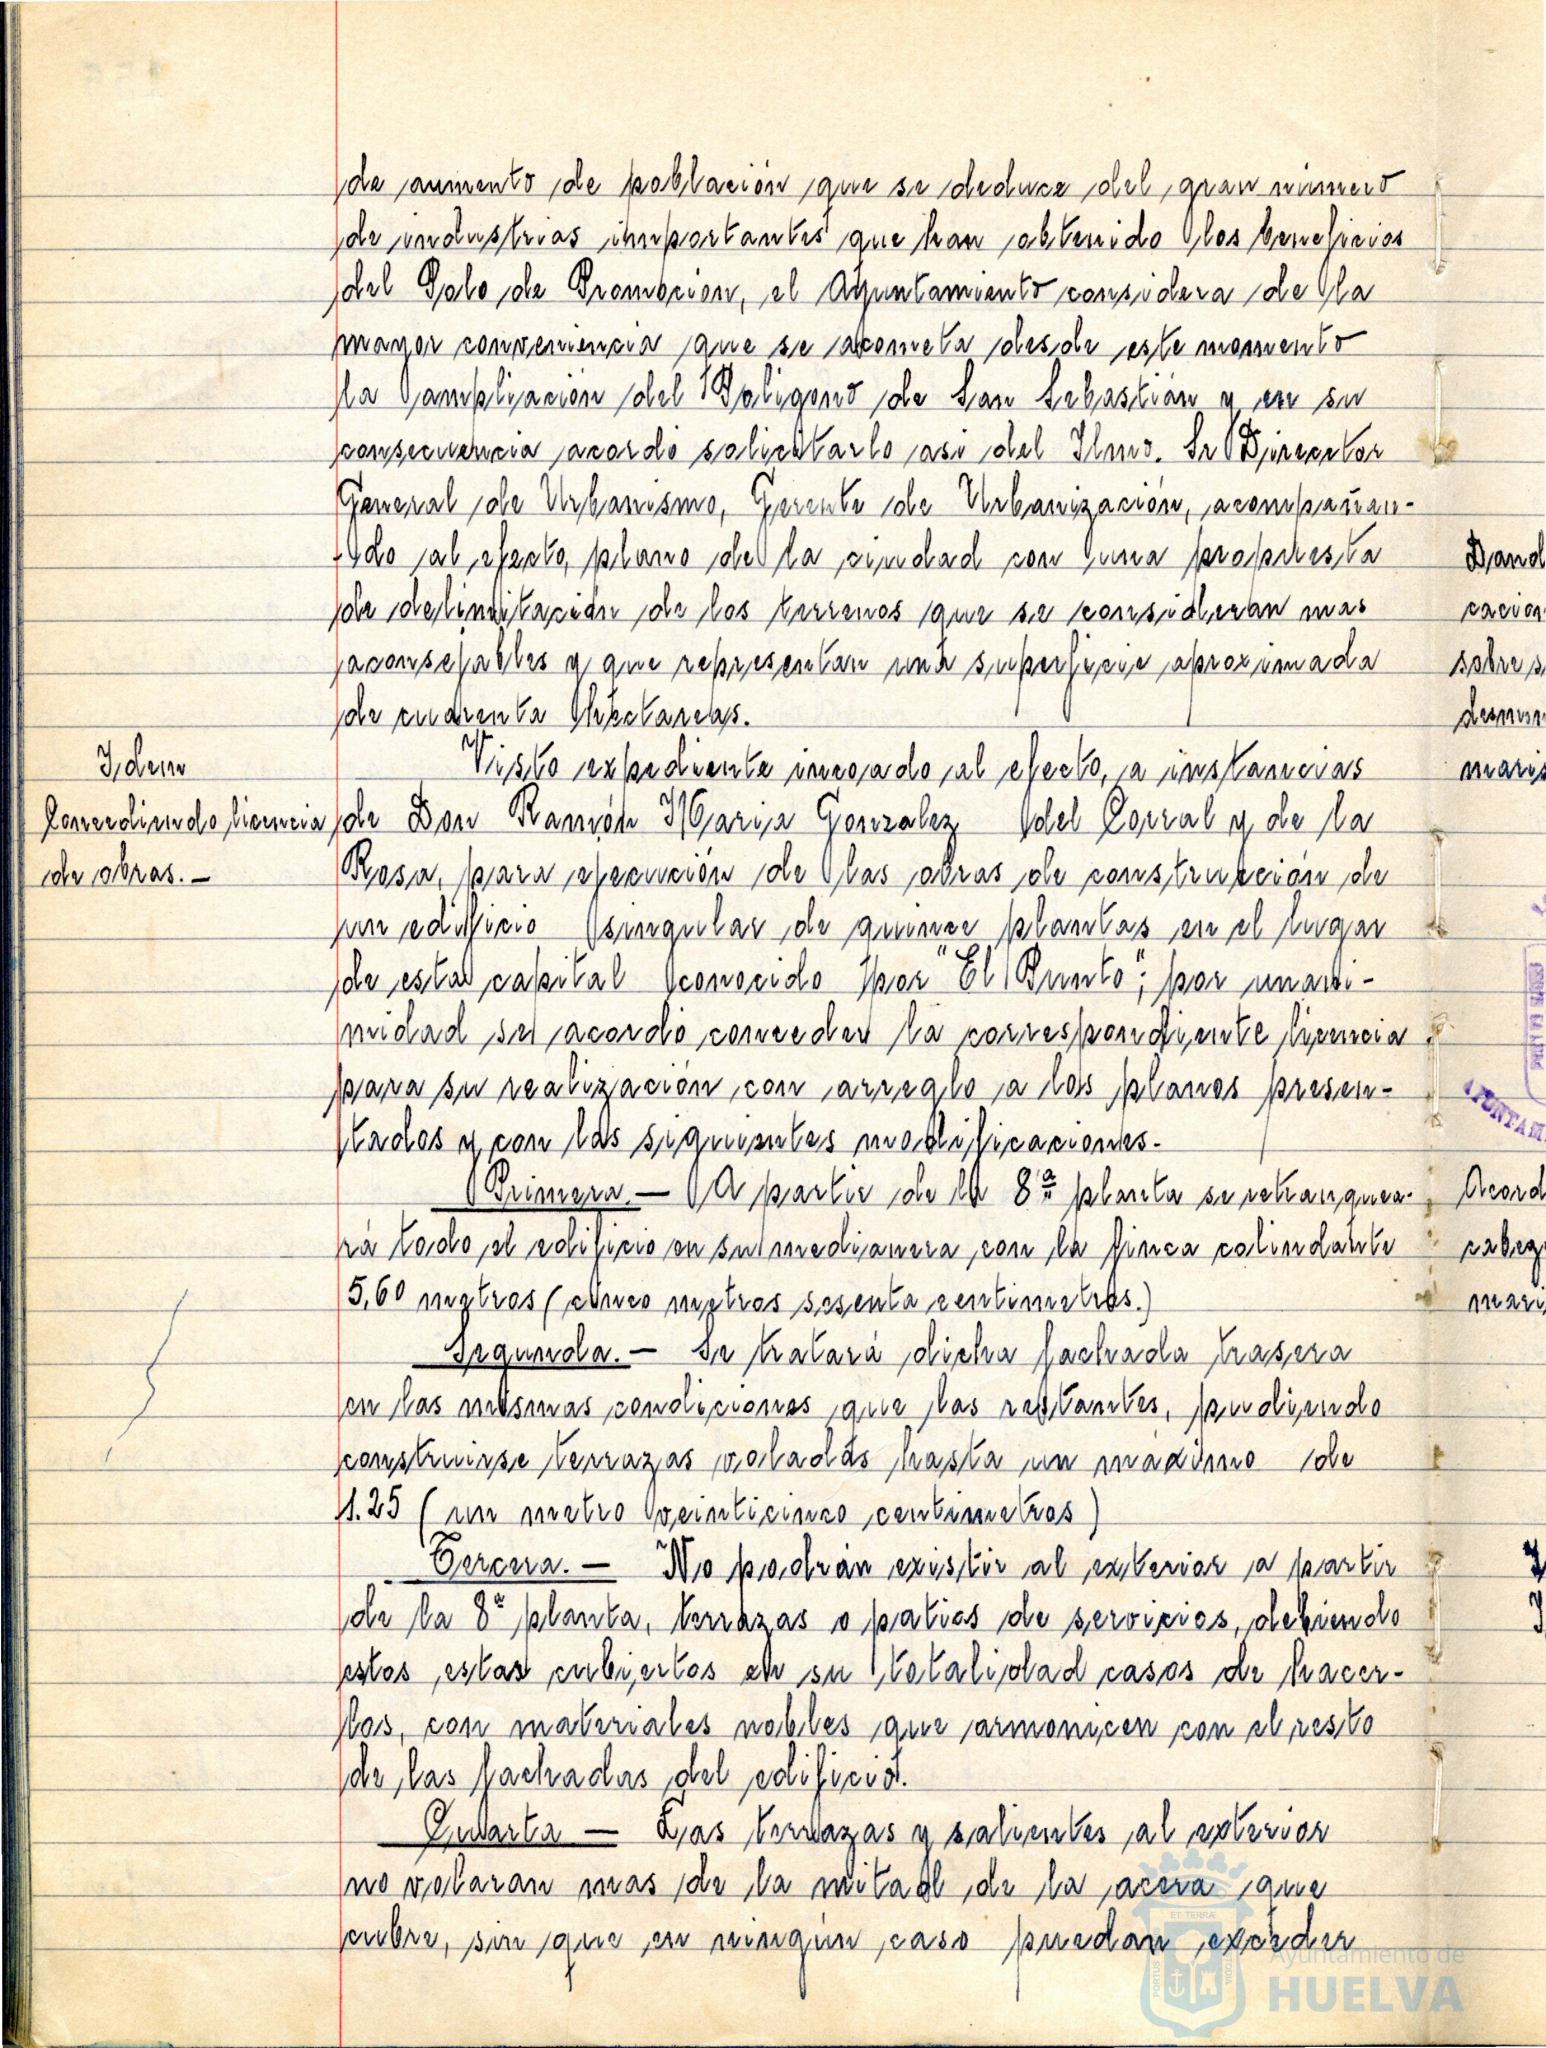 de aumento de población que se deduce del gran número
de industrias importantes que han obtenido los beneficios
del Polo de Promoción, el Ayuntamiento considera de la
mayor conveniencia que se acometa desde este momento
la ampliación del Poligono de San Sebastián y en su
consecuencia acordó solicitarlo asi del Ilmo. Sr Director
General de Urbanismo, Gerente de Urbanización, acompañan-
do al efecto, plano de la ciudad con una propuesta
de delimitación de los terrenos que se consideran mas
aconsejables y que representan una superficie aproximada
de cuarenta Hectareas.
Idem
Concediendo licencia
de obras. —
Visto expediente incoado al efecto, a instancias
de Don Ramón Maria Gonzalez del Corral y de la
Rosa, para ejecución de las obras de construcción de
un edificio singular de quince plantas en el lugar
de esta capital conocido por "El Punto"; por unani-
midad se acordó conceder la correspondiente licencia
para su realización con arreglo a los planos presen-
tados y con las siguientes modificaciones.
Primera. — A partir de la 8ª planta se retranquea-
rá todo el edificio en su medianera con la finca colindante
5,60 metros (cinco metros sesenta centimetros.)
Segunda. — Se tratará dicha fachada trasera
en las mismas condiciones que las restantes, pudiendo
construirse terrazas voladas hasta un máximo de
1.25 (un metro veinticinco centimetros)
Tercera. — No podrán existir al exterior a partir
de la 8ª planta, terrazas o patios de servicios, debiendo
estos estar cubiertos en su totalidad casos de hacer-
los, con materiales nobles que armonicen con el resto
de las fachadas del edificio.
Cuarta — Las terrazas y salientes al exterior
no volaran mas de la mitad de la acera que
cubre, sin que en ningún caso puedan exceder
Dand
cacion
sobre s
desmun
maris
AYUNTAM
Acord
cabez
mari
ET TERRÆ
PORTUS
CUSTODIA
Ayuntamiento de
HUELVA